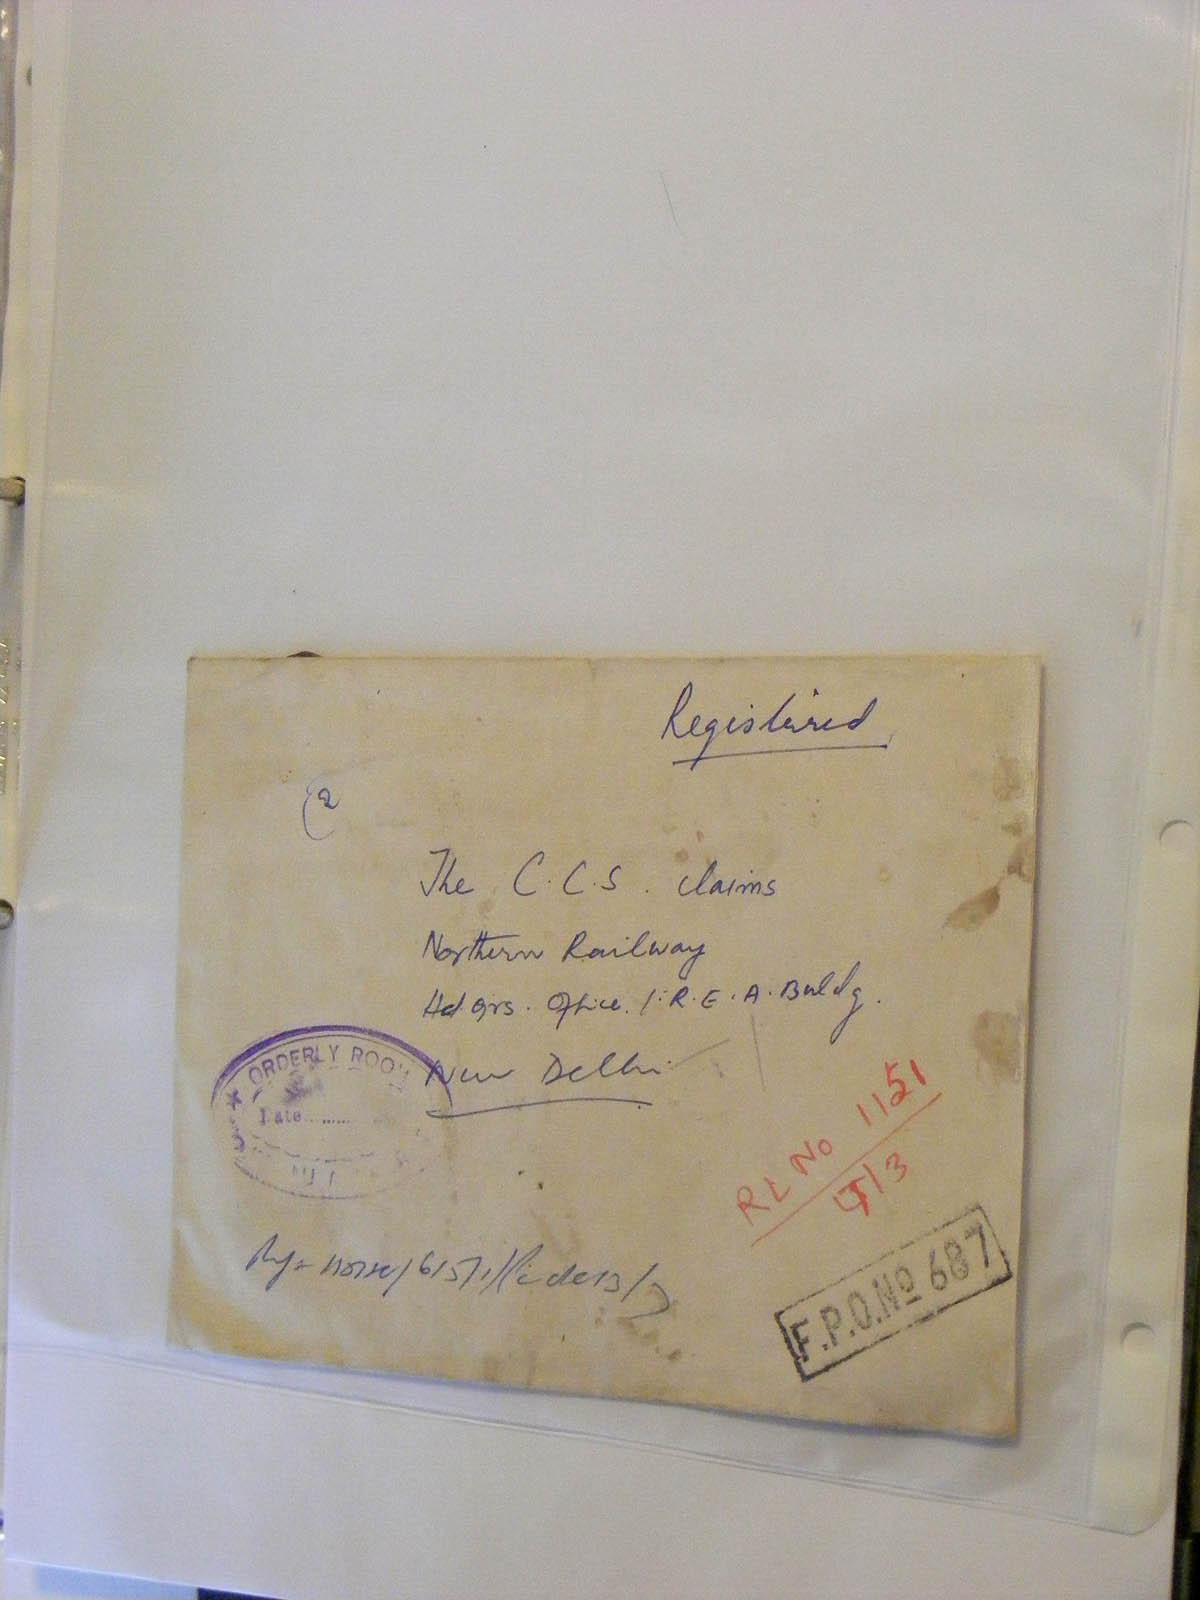 Registered
The C.C.S. Claims
Northern Railway
Hd. Qrs. Office. I.R.E.A. Buldg.
New Delhi
ORDERLY ROOM
Date........
RL No 1151
4/3
F.P.O.No 687